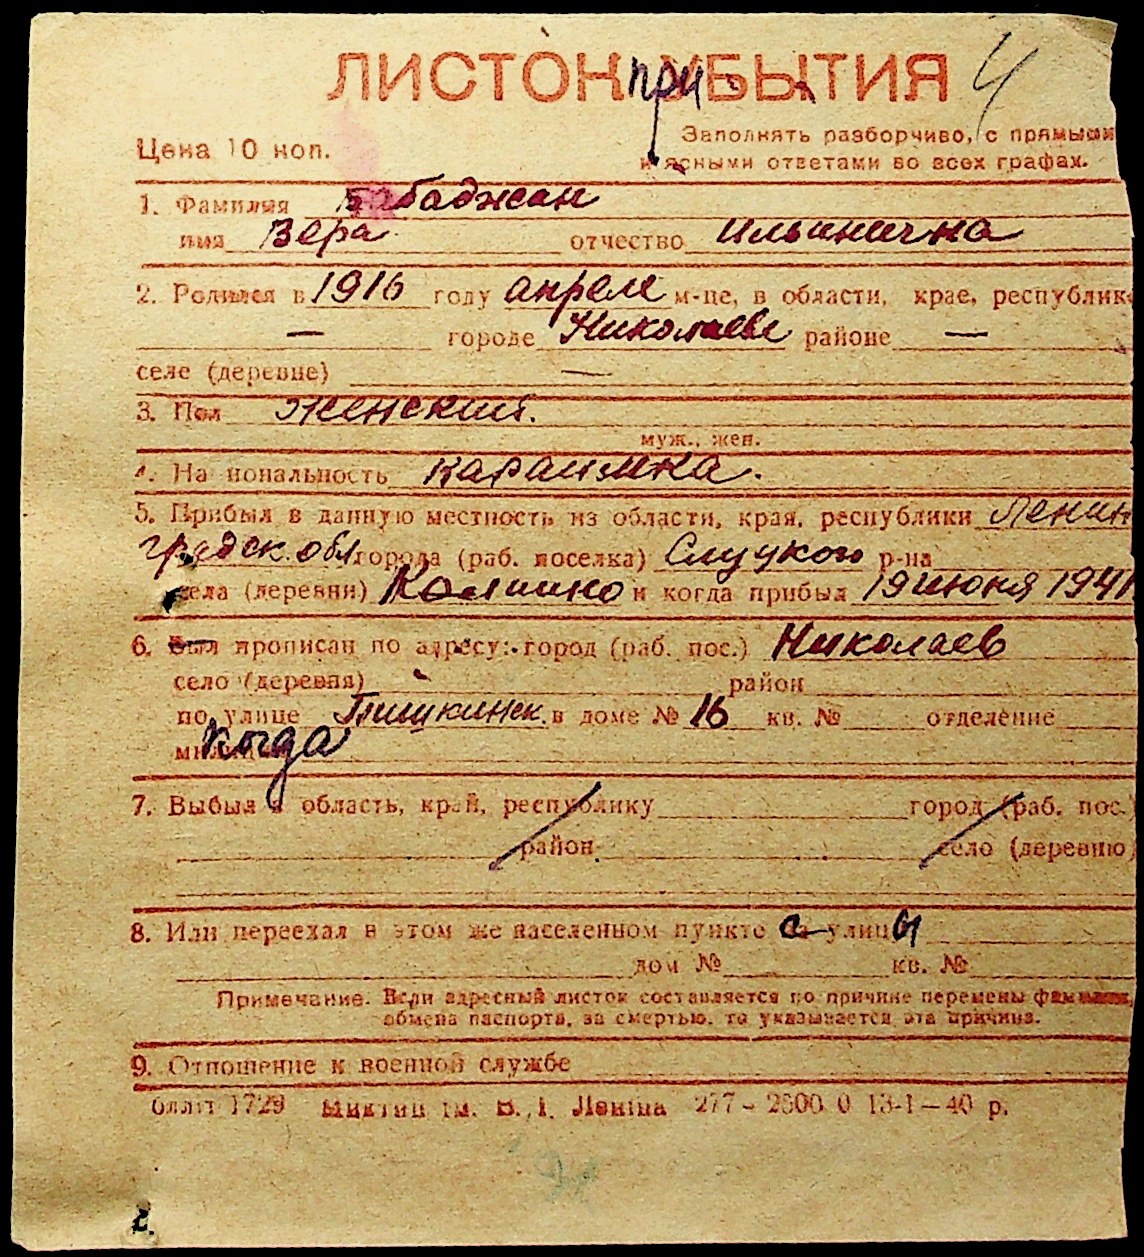 ЛИСТОК при УБЫТИЯ 4
Цена 10 коп.
Заполнять разборчиво, с прямыми
и ясными ответами во всех графах.
1. Фамилия Бабаджан
имя Вера отчество Ильинична
2. Родился в 1916 году апреле м-це, в области, крае, республик
— городе Николаеве районе —
селе (деревне) —
3. Пол женский.
муж., жен.
4. Национальность караимка.
5. Прибыл в данную местность из области, края, республики Ленин
градск. обл. города (раб. поселка) Слуцкого р-на
села (деревни) и когда прибыл 19 июня 1941
6. Был прописан по адресу: город (раб. пос.) Николаев
село (деревня) район
по улице Пушкинск. в доме № 16 кв. № отделение
когда
7. Выбыл в область, край, республику город (раб. пос.)
район село (деревню)
8. Или переехал в этом же населенном пункте с улицы
дом № кв. №
Примечание. Если адресный листок составляется по причине перемены фамилии,
обмена паспорта, за смертью, то указывается эта причина.
9. Отношение к военной службе
1729 ім. В. І. Леніна 277 – 2500 0 13-І – 40 р.